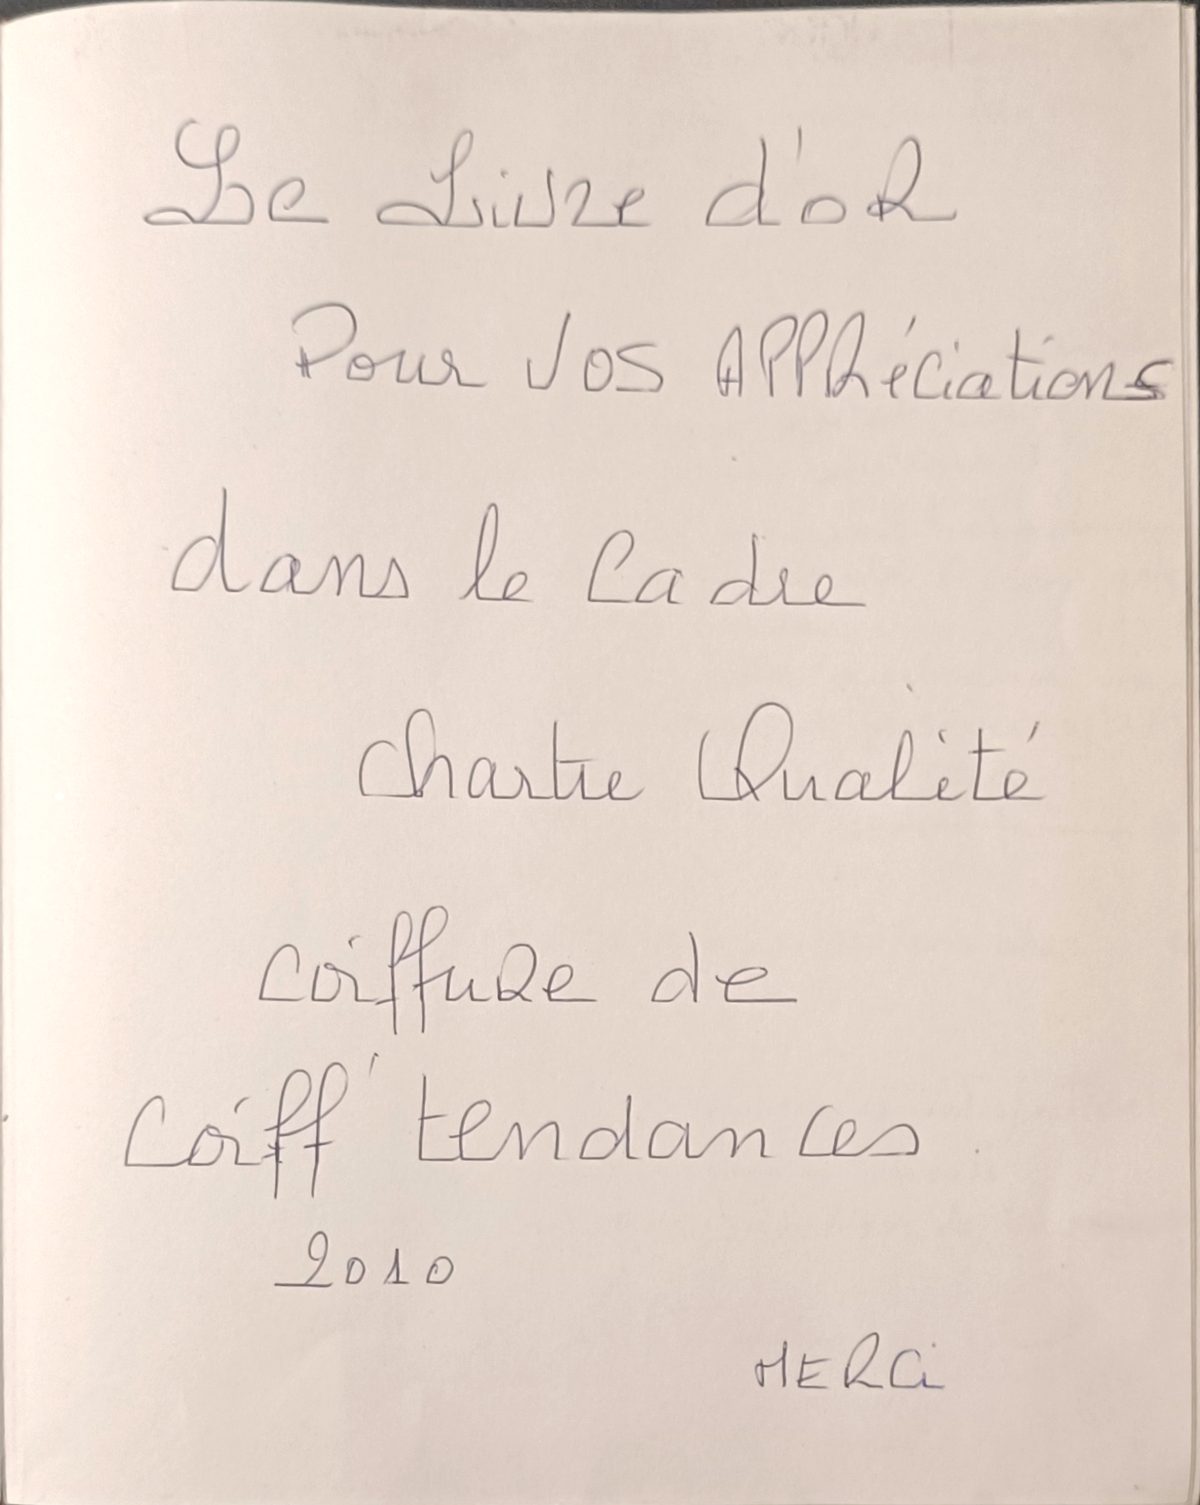 Le Livre d'oR
Pour Vos APPRéciations
dans le Cadre
Chartre Qualité
Coiffure de
Coiff' tendances
2010
MERCi